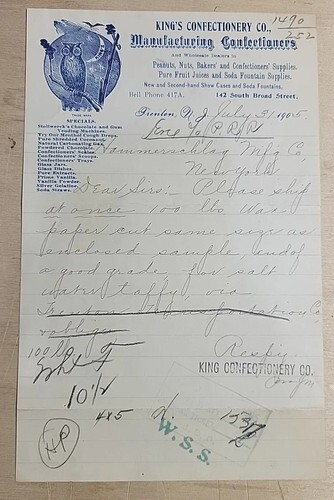 1490
252
KING'S CONFECTIONERY CO.,
Manufacturing Confectioners
And Wholesale Dealers in
Peanuts, Nuts, Bakers' and Confectioners' Supplies.
Pure Fruit Juices and Soda Fountain Supplies.
New and Second-hand Show Cases and Soda Fountains.
Bell Phone 417A. 142 South Broad Street.
TRADE MARK
SPECIALS
Hollweck's Chocolate and Gum
Vending Machines.
Try Our Menthol Cough Drops.
Pure Shredded Cocoanut.
Natural Carbonating Gas.
Powdered Chocolate.
Confectioners' Scales.
Confectioners' Scoops.
Confectioners' Trays.
Glass Jars.
Glass Dishes.
Pure Extracts.
Prime Vanilla.
Vanilla Powder.
Silver Gelatine.
Soda Straws.
Trenton, N. J. July 31 1905
Hammerschlag Mfg Co,
New York
Dear Sirs: Please ship
at once 100 lbs Wax
paper cut same size as
enclosed sample, and of
a good grade, for salt
water taffy, via
Trenton Transportation Co
& oblige
Resp'y
KING CONFECTIONERY CO.
100 lb
10 1/2
4x5
W. S. S.
HP